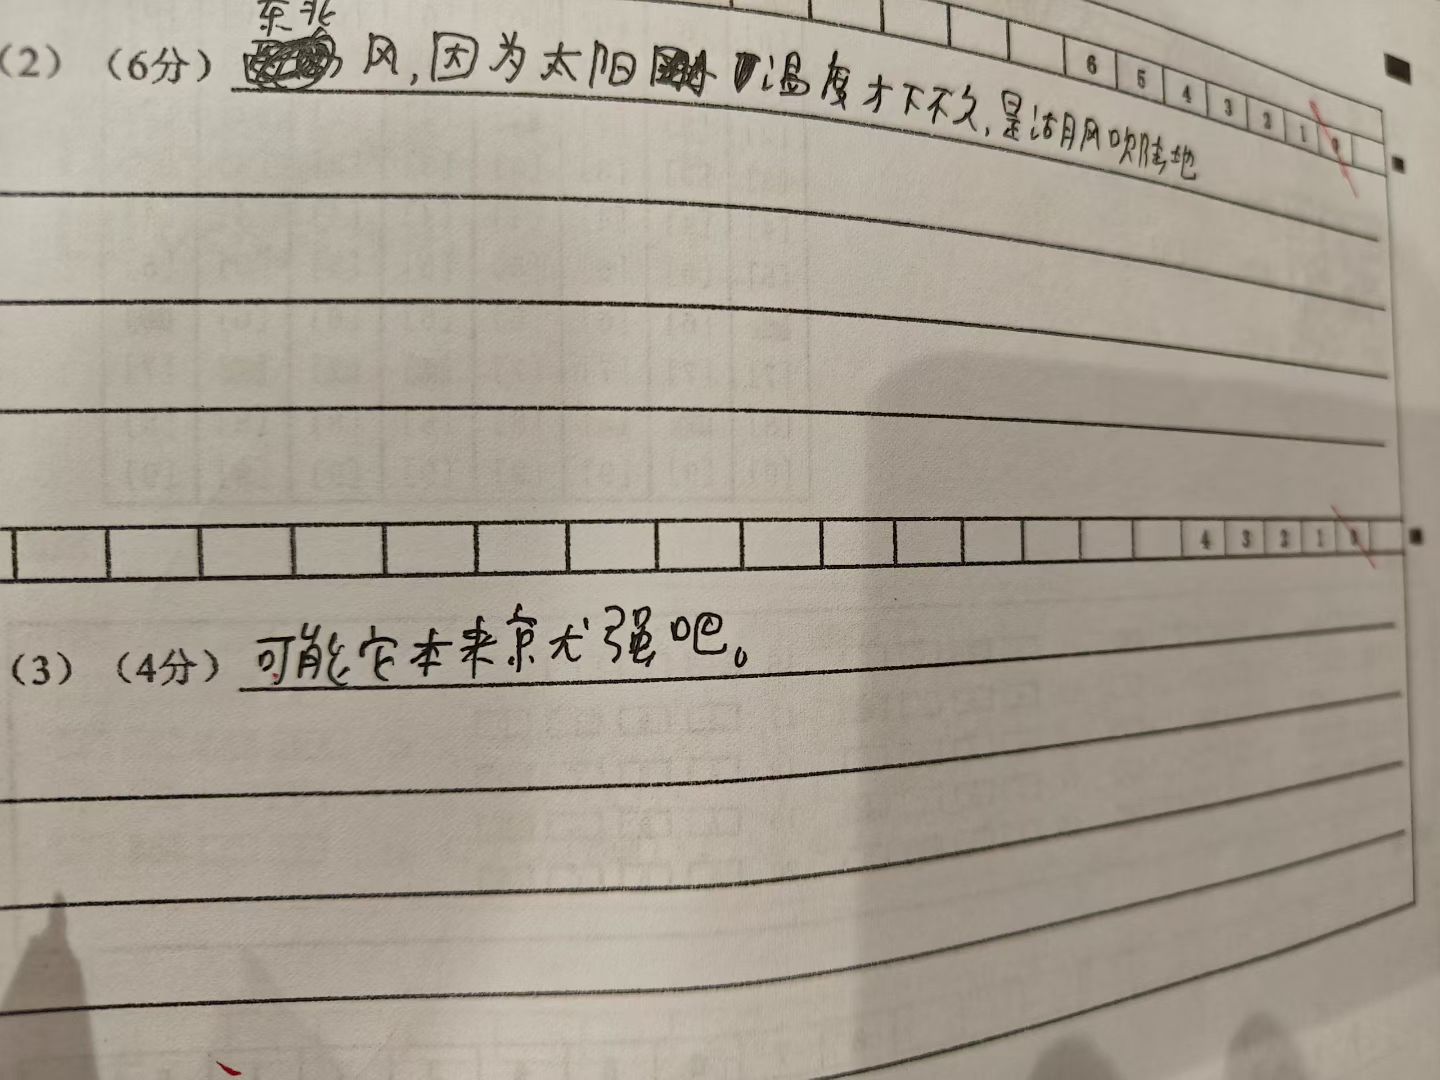 6 5 4 3 2 1 0
东北
(2) (6分) 风,因为太阳 温度才下不久,是湖风吹陆地
4 3 2 1 0
(3) (4分) 可能它本来就强吧。